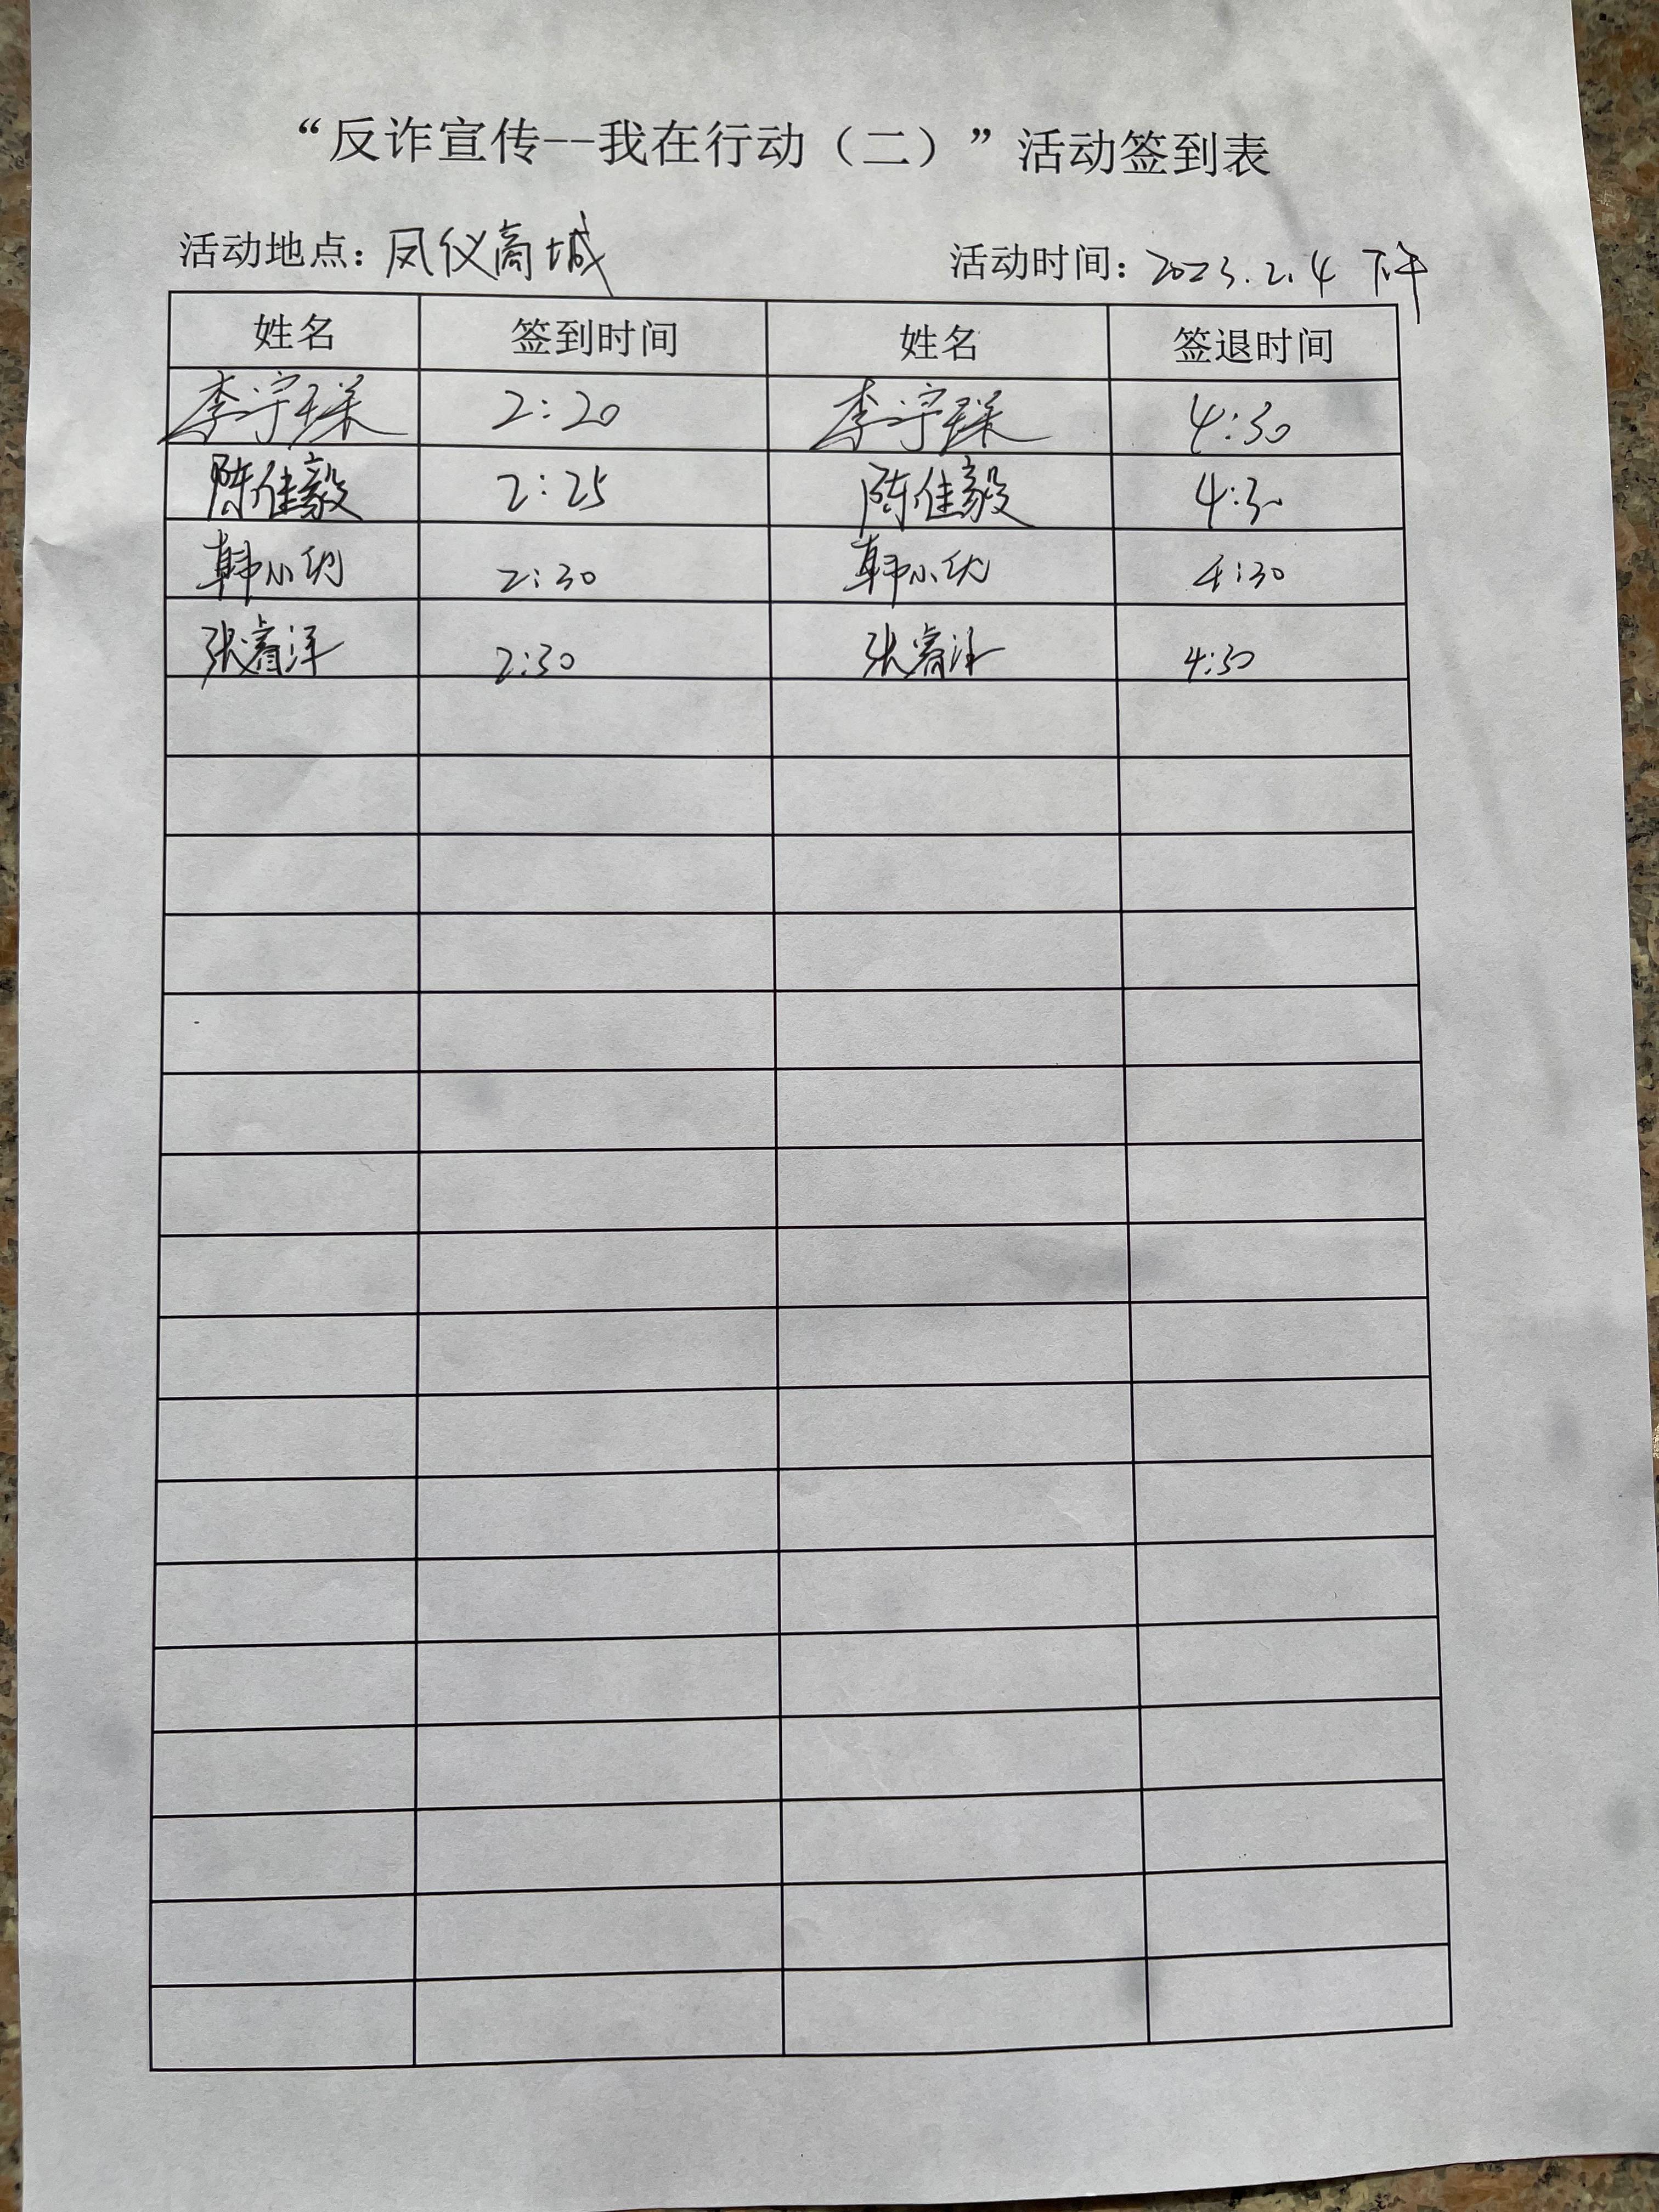 “反诈宣传--我在行动（二）”活动签到表
活动地点：凤仪商城 活动时间：2023.2.4 下午
姓名 签到时间 姓名 签退时间
李宇琛 2:20 李宇琛 4:30
陈佳毅 2:25 陈佳毅 4:30
韩小 2:30 韩小 4:30
张睿洋 2:30 张睿洋 4:30